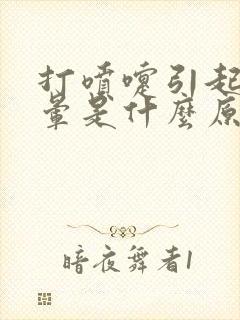 打噴嚏引起
暈是什麼原
暗夜舞者1